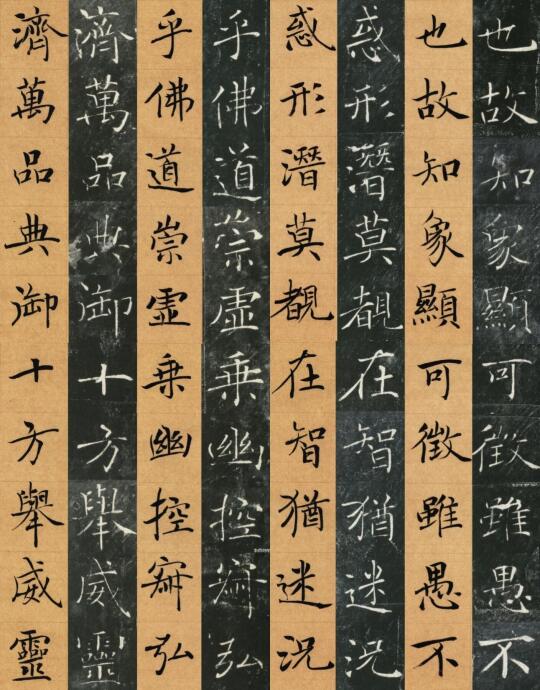 也故知象顯可徵雖愚不
也故知象顯可徵雖愚不
惑形潛莫覩在智猶迷況
惑形潛莫覩在智猶迷況
乎佛道崇虛乘幽控寂弘
乎佛道崇虛乘幽控寂弘
濟萬品典御十方舉威靈
濟萬品典御十方舉威靈